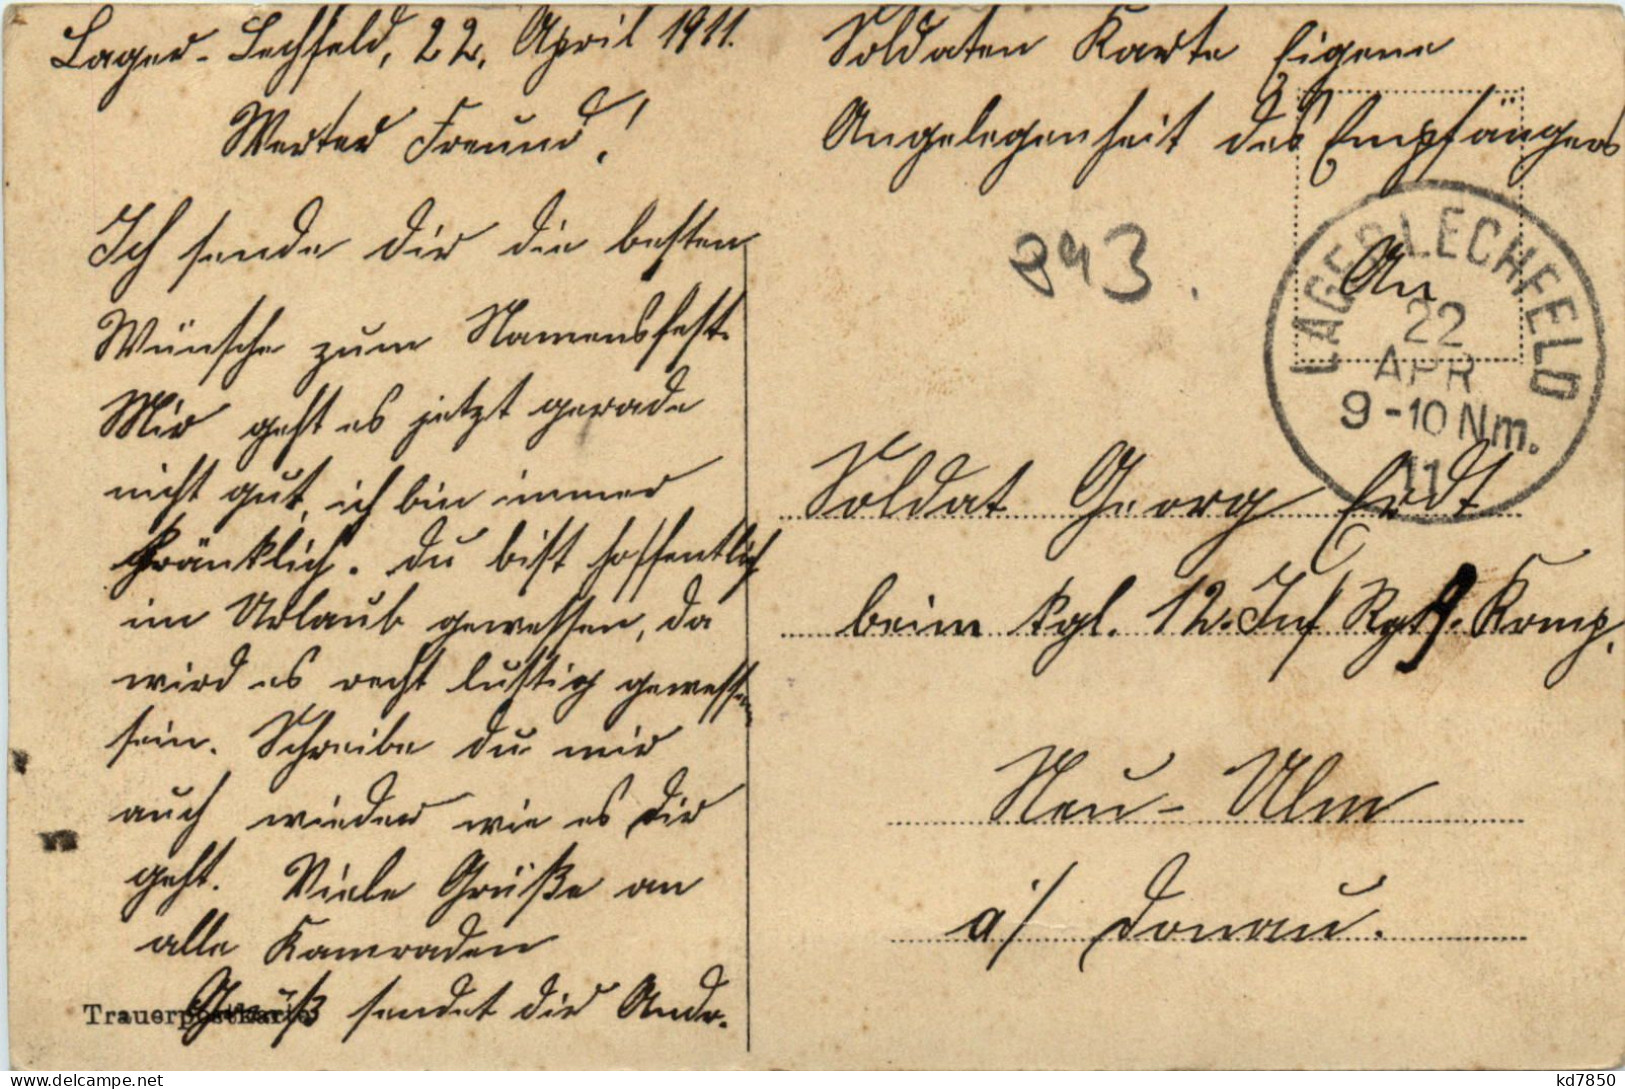 Lager-Lechfeld, 22. April 1911.
Werter Freund!
Ich sende dir die besten
Wünsche zum Namensfest.
Mir geht es jetzt gerade
nicht gut, ich bin immer
kränklich. du bist hoffentlich
im Urlaub gewessen, da
wird es recht lustig gewessen
sein. Schreibe du mir
auch wieder wie es dir
geht. Viele Grüße an
alle Kamraden
Gruß sendet dir Andr.
Trauerpostkarte
Soldaten Karte Eigene
Angelegenheit des Empfängers
893.
LAGER LECHFELD
22
APR
9-10 Nm.
11
An
Soldat Georg Erdt
beim kgl. 12. Inf Rgt 9. Komp.
Neu-Ulm
a/ Donau.
kd7850